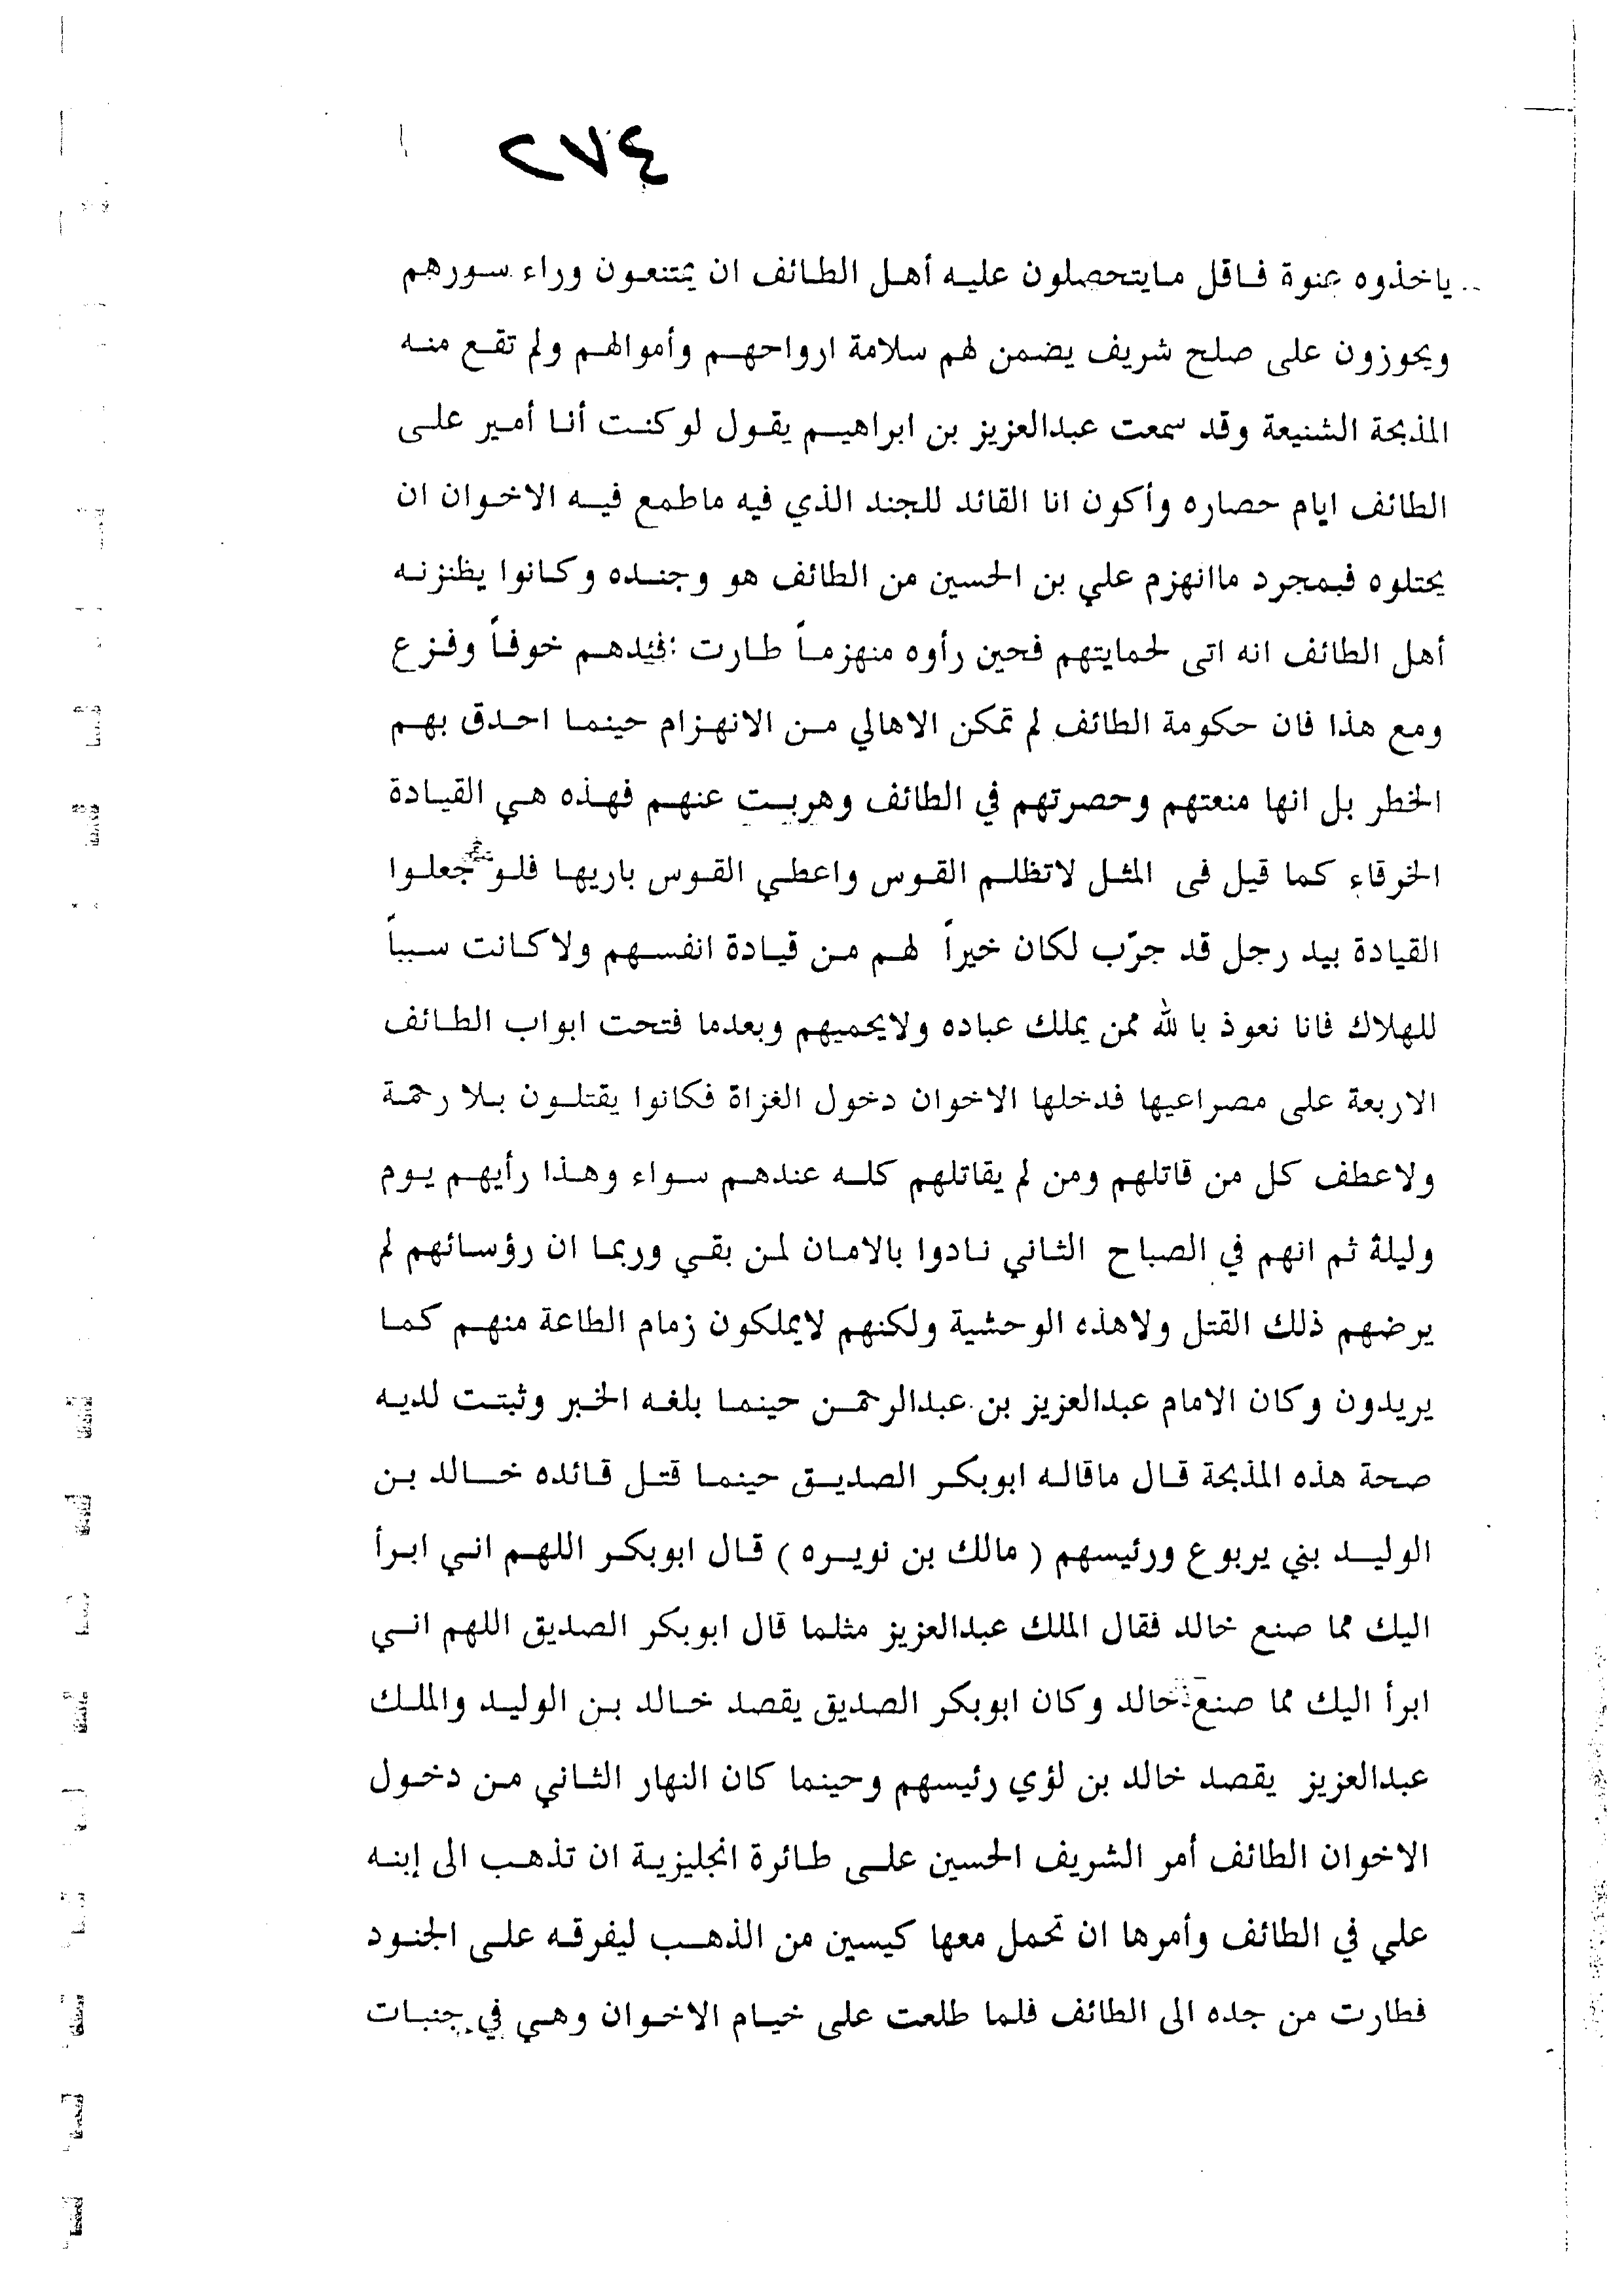 ٢٧٤
ياخذوه عنوة فاقل مايتحصلون عليه أهل الطائف ان يمتنعون وراء سورهم
ويحوزون على صلح شريف يضمن لهم سلامة ارواحهم وأموالهم ولم تقع منه
المذبحة الشنيعة وقد سمعت عبدالعزيز بن ابراهيم يقول لو كنت أنا أمير على
الطائف ايام حصاره وأكون انا القائد للجند الذي فيه ماطمع فيه الاخوان ان
يحتلوه فبمجرد ماانهزم علي بن الحسين من الطائف هو وجنده وكانوا يظنزنه
أهل الطائف انه اتى لحمايتهم فحين رأوه منهزماً طارت خوفاً وفزع
ومع هذا فان حكومة الطائف لم تمكن الاهالي من الانهزام حينما احدق بهم
الخطر بل انها منعتهم وحصرتهم في الطائف وهربت عنهم فهذه هي القيادة
الخرقاء كما قيل فى المثل لاتظلم القوس واعطي القوس باريها فلو جعلوا
القيادة بيد رجل قد جرّب لكان خيراً لهم من قيادة انفسهم ولاكانت سبباً
للهلاك فانا نعوذ با لله ممن يملك عباده ولايحميهم وبعدما فتحت ابواب الطائف
الاربعة على مصراعيها فدخلها الاخوان دخول الغزاة فكانوا يقتلون بلا رحمة
ولاعطف كل من قاتلهم ومن لم يقاتلهم كله عندهم سواء وهذا رأيهم يوم
وليلة ثم انهم في الصباح الثاني نادوا بالامان لمن بقي وربما ان رؤسائهم لم
يرضهم ذلك القتل ولاهذه الوحشية ولكنهم لايملكون زمام الطاعة منهم كما
يريدون وكان الامام عبدالعزيز بن عبدالرحمن حينما بلغه الخبر وثبتت لديه
صحة هذه المذبحة قال ماقاله ابوبكر الصديق حينما قتل قائده خالد بن
الوليد بني يربوع ورئيسهم ( مالك بن نويره ) قال ابوبكر اللهم اني ابرأ
اليك مما صنع خالد فقال الملك عبدالعزيز مثلما قال ابوبكر الصديق اللهم اني
ابرأ اليك مما صنع خالد وكان ابوبكر الصديق يقصد خالد بن الوليد والملك
عبدالعزيز يقصد خالد بن لؤي رئيسهم وحينما كان النهار الثاني من دخول
الاخوان الطائف أمر الشريف الحسين على طائرة انجليزية ان تذهب الى إبنه
علي في الطائف وأمرها ان تحمل معها كيسين من الذهب ليفرقه على الجنود
فطارت من جده الى الطائف فلما طلعت على خيام الاخوان وهي في جنبات